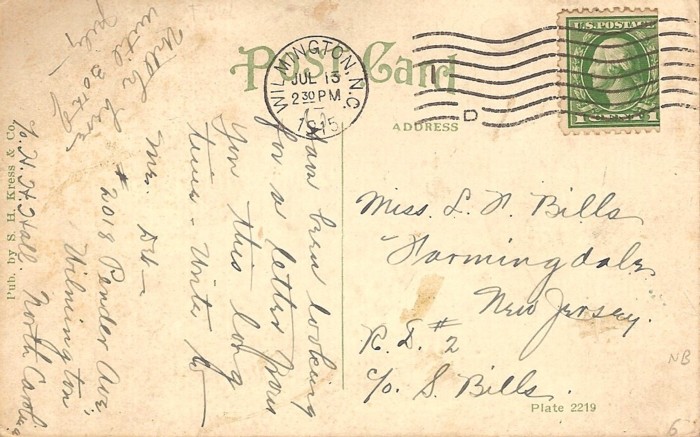 Post Card
WILMINGTON, N.C.
JUL 13
2 30 PM
1915
D
U.S. POSTAGE
ADDRESS
Miss. L. P. Bills
Farmingdale
New Jersey.
R. D. #2
c/o S. Bills.
Plate 2219
NB
6
Pub. by S. H. Kress & Co.
Have been looking
for a letter from
You this long
time - Write to
Mrs. DH-
#2018 Pender Ave,
Wilmington
North Carolina
c/o H. H. Hall
Will be here
until 30th of
july -